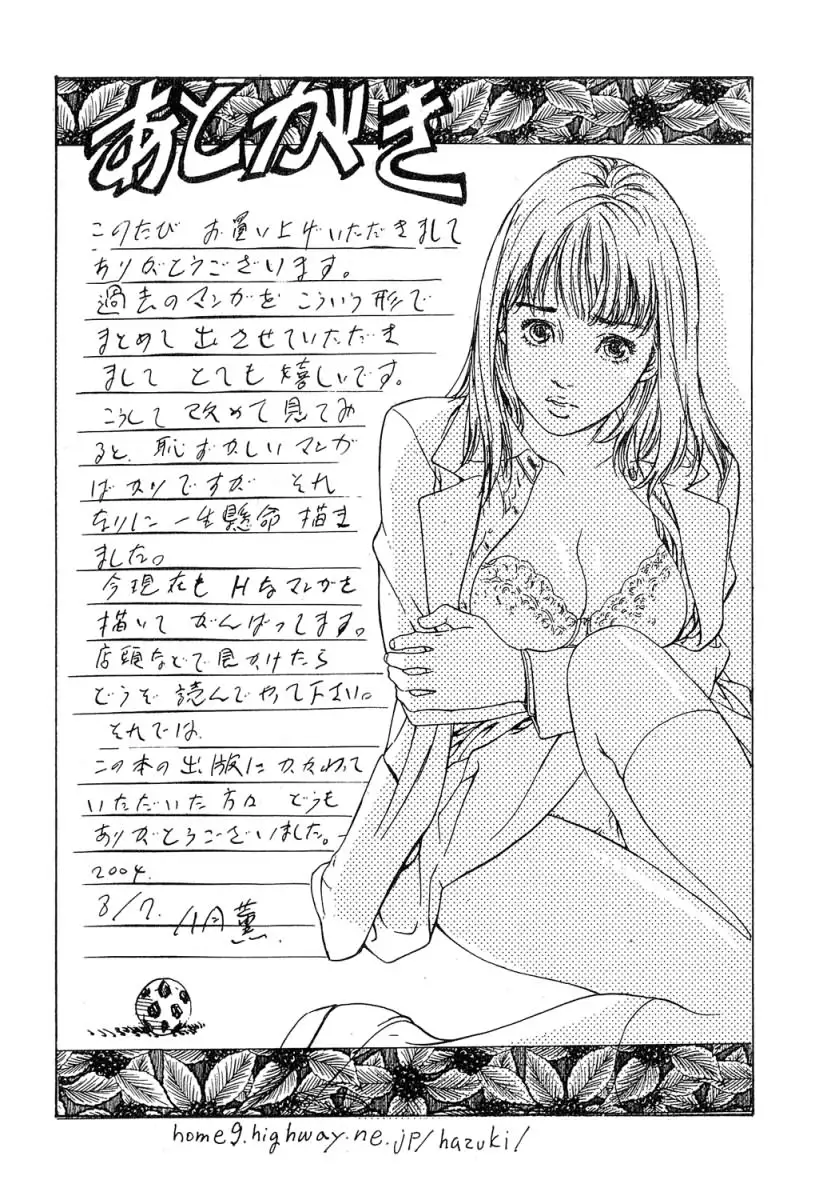 あとがき
このたび お買い上げいただきまして
ありがとうございます。
過去のマンガを こういう形で
まとめて出させていただき
まして とても 嬉しいです。
こうして 改めて見てみ
ると、恥ずかしいマンガ
ばかりですが それ
なりに 一生懸命 描き
ました。
今現在も Hなマンガを
描いて がんばってます。
店頭などで見かけたら
どうぞ 読んでやって下さい。
それでは
この本の出版に かかわって
いただいた方々 どうも
ありがとうございました。
2004.
8/7. 八月薫
home9.highway.ne.jp/hazuki/